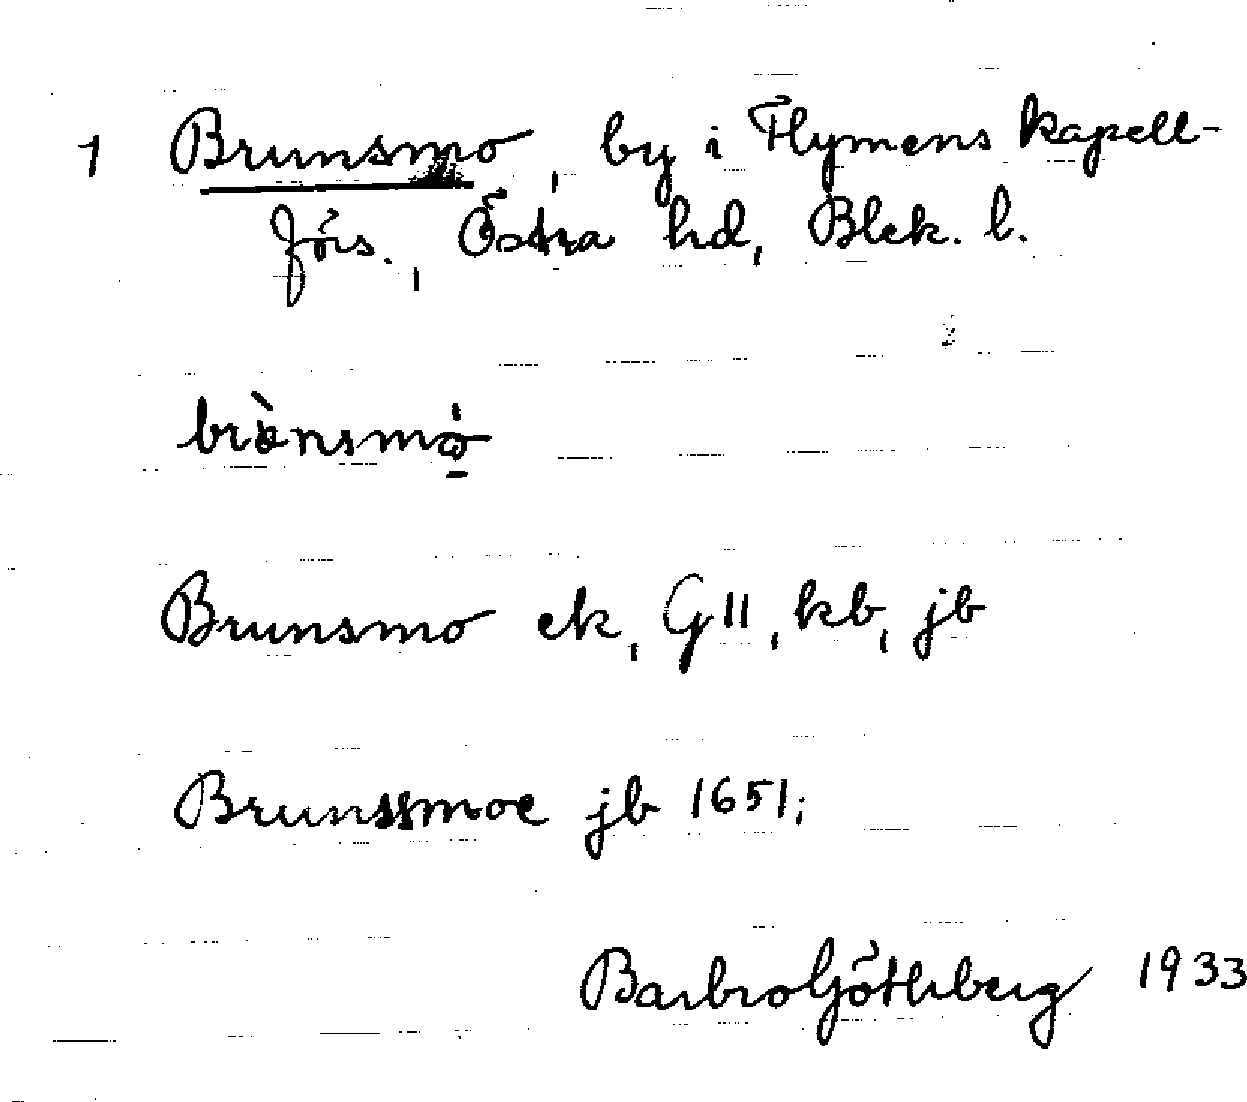 1 Brunsmo, by i Flymens kapell-
förs., Östra hd, Blek. l.
Brunsmo ek, GII, kb, jb
Brunssmoe jb 1651;
Barbro Götherberg 1933